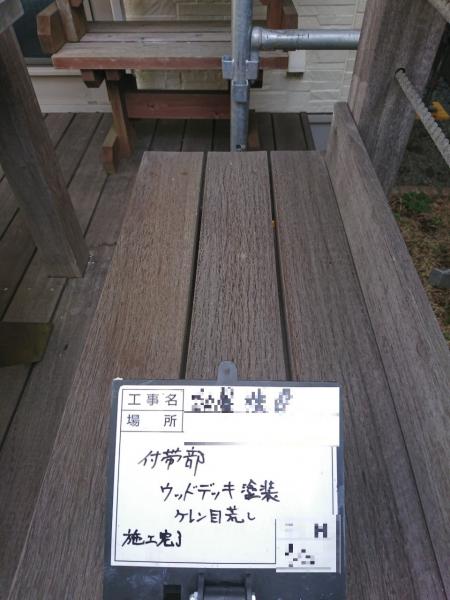 工事名
場所
付帯部
ウッドデッキ塗装
ケレン目荒し
施工完了
H